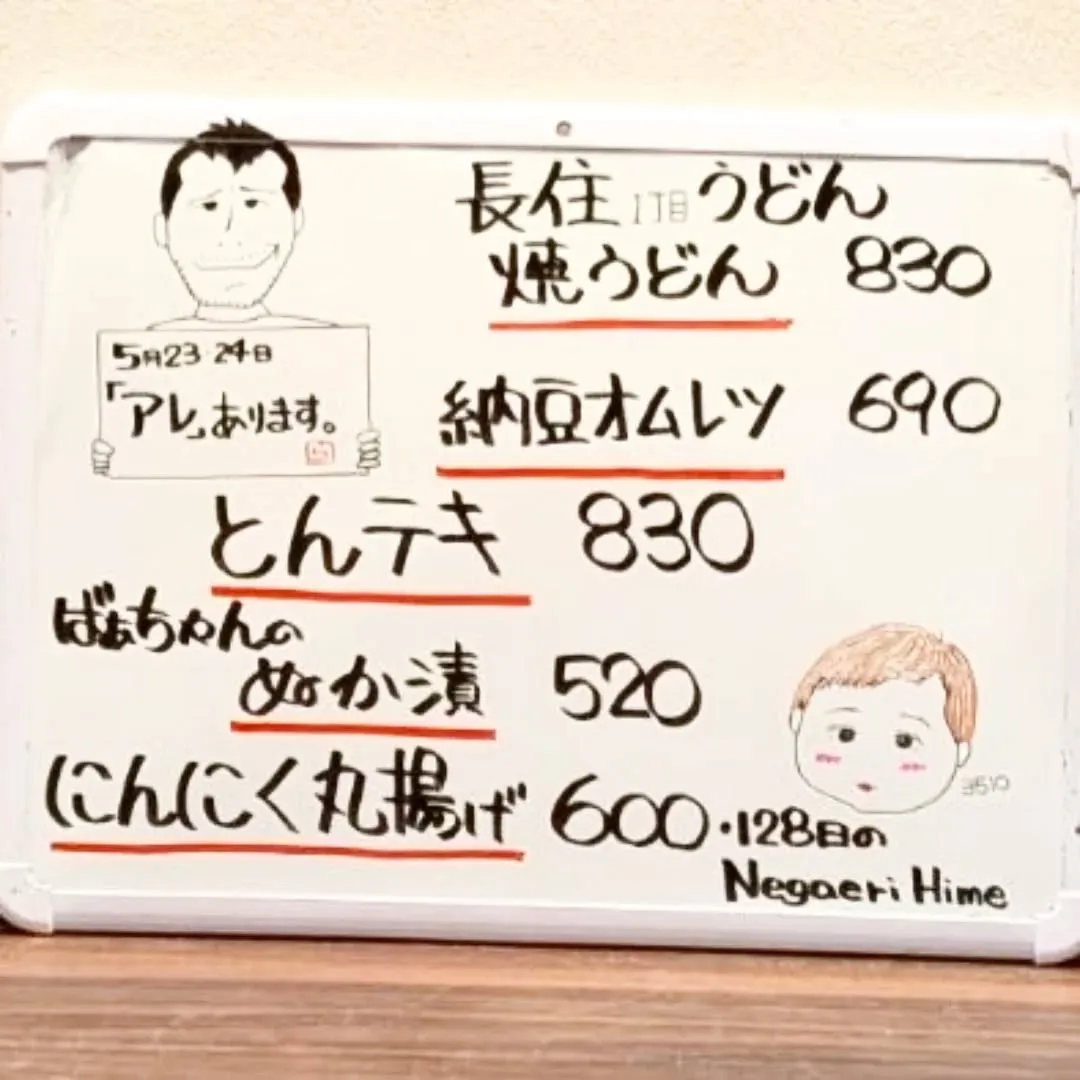 長住1丁目うどん
焼うどん 830
5月23・24日
「アレ」あります。
納豆オムレツ 690
とんテキ 830
ばぁちゃんの
ぬか漬 520
にんにく丸揚げ 600
3510
・128日の
Negaeri Hime